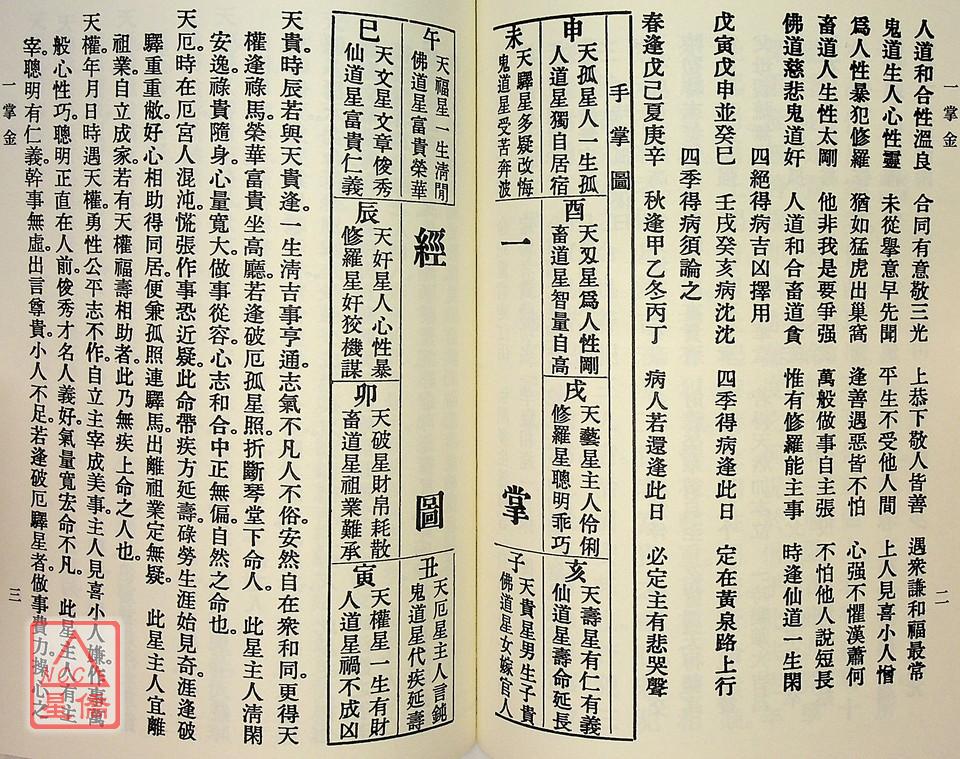 一掌金
二
人道和合性溫良 合同有意敬三光 上恭下敬人皆善 遇衆謙和福最常
鬼道生人心性靈 未從舉意早先聞 平生不受他人間 上人見喜小人憎
爲人性暴犯修羅 猶如猛虎出巢窩 逢善遇惡皆不怕 心强不懼漢蕭何
畜道人生性太剛 他非我是要爭强 萬般做事自主張 不怕他人說短長
佛道慈悲鬼道奸 人道和合畜道貪 惟有修羅能主事 時逢仙道一生閑
四絕得病吉凶擇用
戊寅戊申並癸巳 壬戌癸亥病沈沈 四季得病逢此日 定在黃泉路上行
四季得病須論之
春逢戊己夏庚辛 秋逢甲乙冬丙丁 病人若還逢此日 必定主有悲哭聲
手掌圖
申 天孤星人一生孤
人道星獨自居宿
未 天驛星多疑改悔
鬼道星受苦奔波
酉 天刄星爲人性剛
畜道星智量自高
戌 天藝星主人伶俐
修羅星聰明乖巧
亥 天壽星有仁有義
仙道星壽命延長
子 天貴星男生子貴
佛道星女嫁官人
一掌
經圖
午 天福星一生清閒
佛道星富貴榮華
巳 天文星文章俊秀
仙道星富貴仁義
辰 天奸星人心性暴
修羅星奸狡機謀
卯 天破星財帛耗散
畜道星祖業難承
丑 天厄星主人言鈍
鬼道星代疾延壽
寅 天權星一生有財
人道星禍不成凶
天貴。時辰若與天貴逢。一生清吉事亨通。志氣不凡人不俗。安然自在衆和同。更得天
權逢祿馬。榮華富貴坐高廳。若逢破厄孤星照。折斷琴堂下命人。 此星主人淸閑
安逸。祿貴隨身。心量寬大。做事從容。心志和合。中正無偏。自然之命也。
天厄。時在厄宮人混沌。慌張作事恐近疑。此命帶疾方延壽。碌勞生涯始見奇。涯逢破
驛重重敝。好心相助得同居。便兼孤照連驛馬。出離祖業定無疑。 此星主人宜離
祖業。自立成家。若有天權福壽相助者。此乃無疾上命之人也。
天權。年月日時遇天權。勇性公平志不作。自立主宰成美事。主人見喜小人嫌。作事萬
般心性巧。聰明正直在人前。俊秀才名人義好。氣量寬宏命不凡。 此星主人有主
宰。聰明有仁義。幹事無虛。出言尊貴。小人不足。若逢破厄驛星者。做事費力。操心之
一掌金
三
WCC
星僑